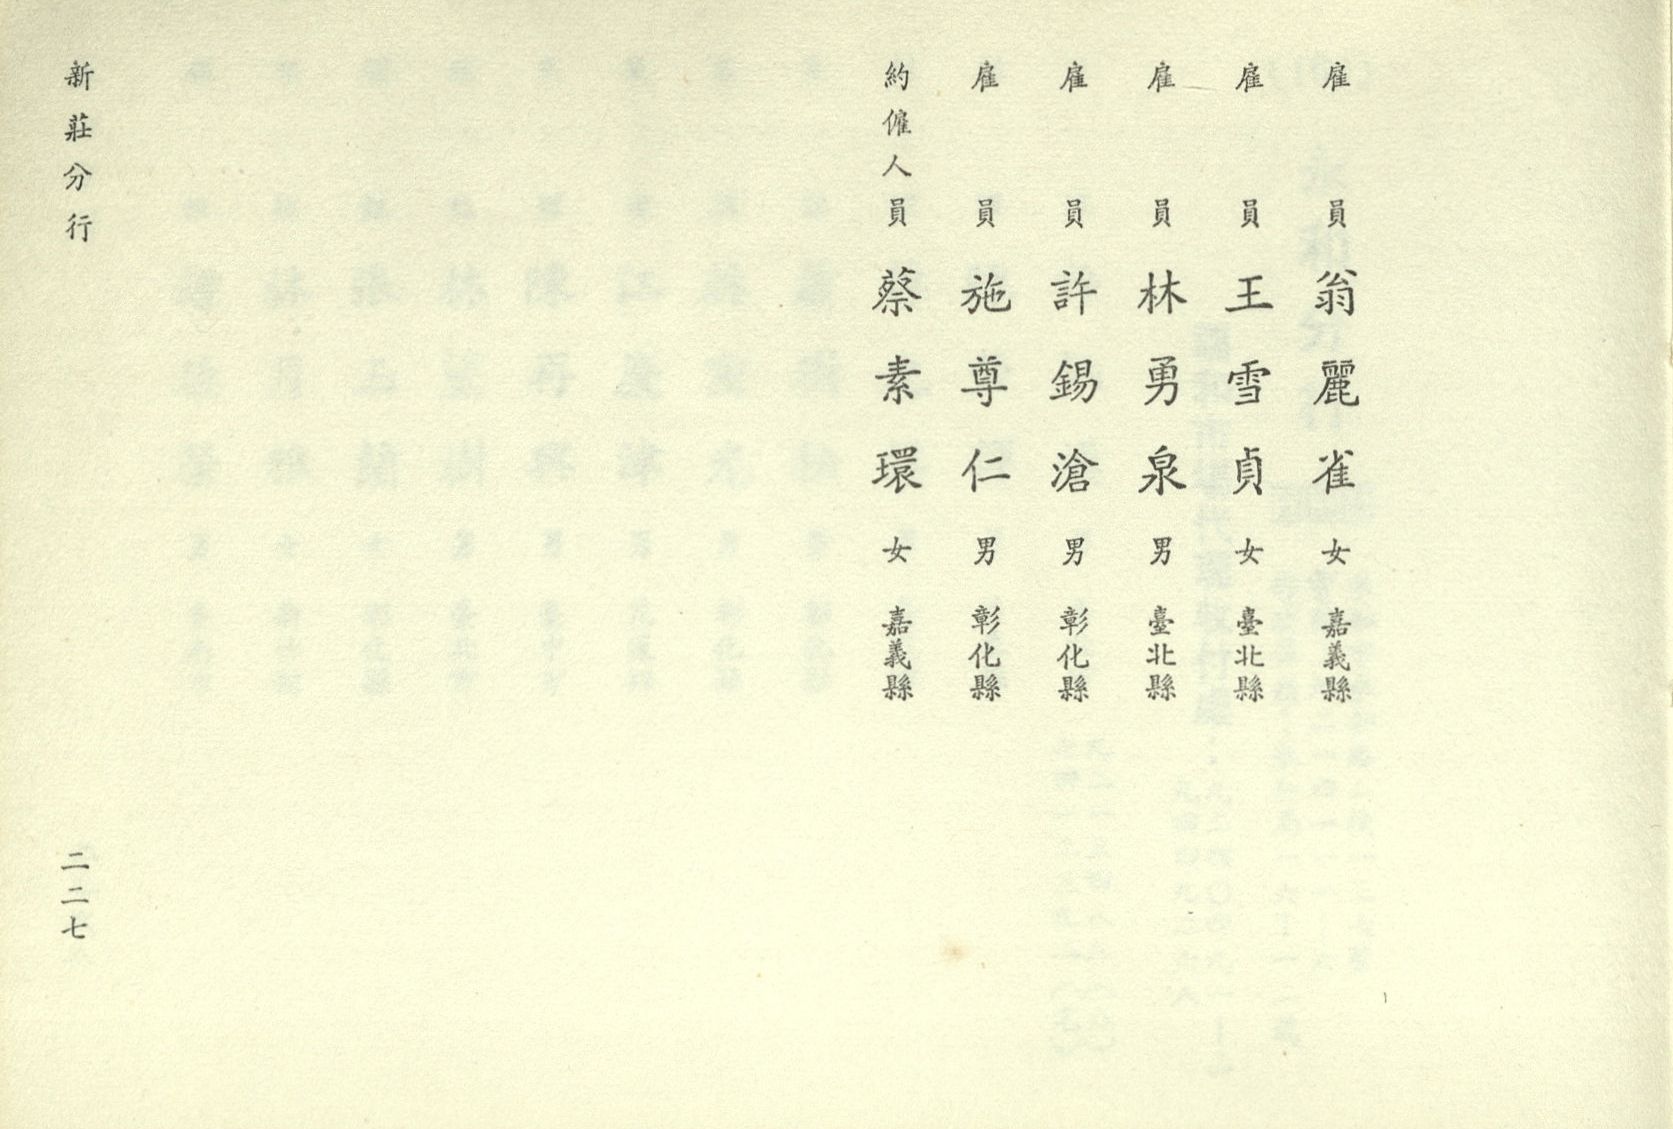 雇員翁麗雀女嘉義縣
雇員王雪貞女臺北縣
雇員林勇泉男臺北縣
雇員許錫滄男彰化縣
雇員施尊仁男彰化縣
約僱人員蔡素環女嘉義縣
新莊分行
二二七